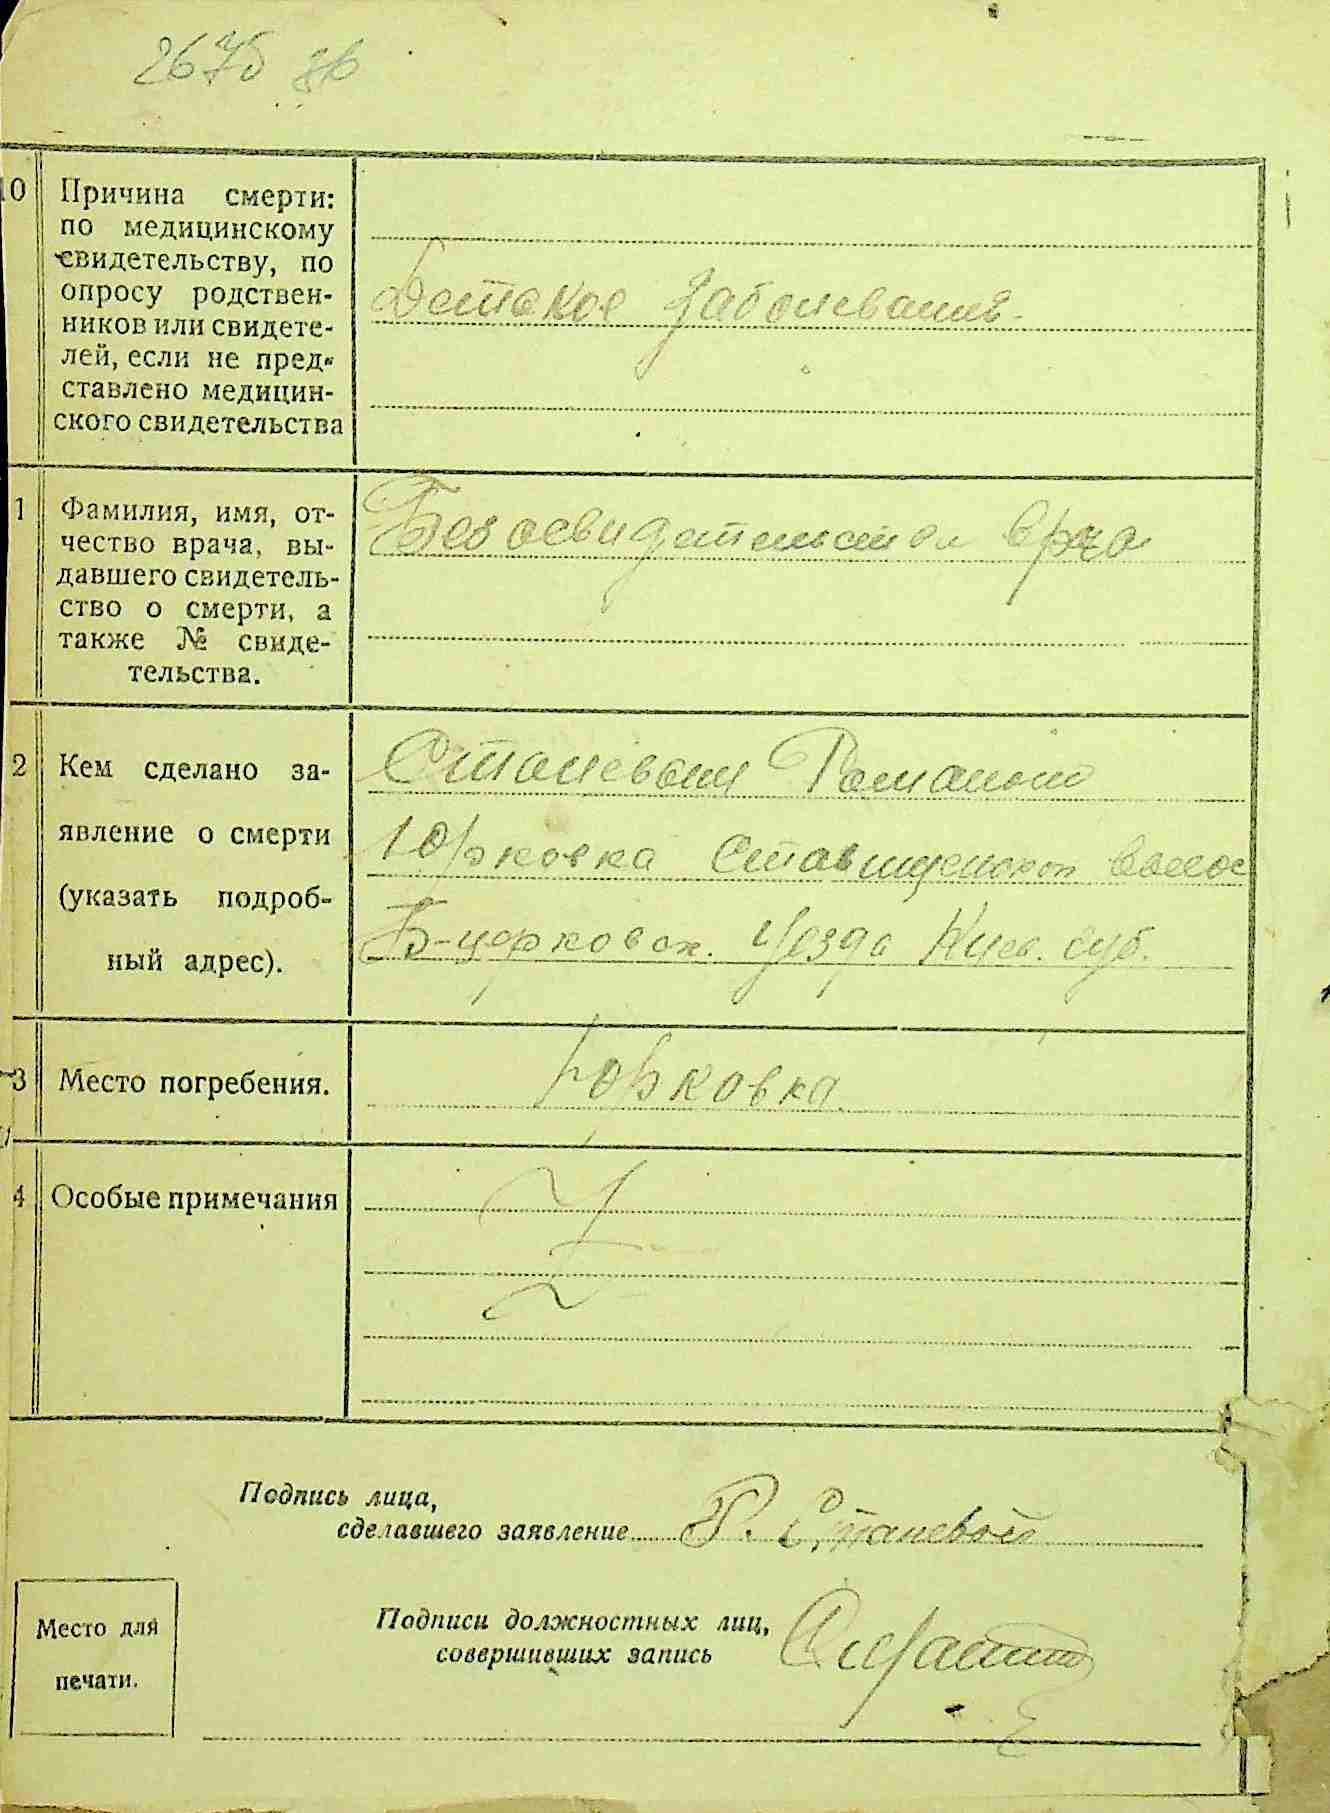 2675 зв
10 Причина смерти:
по медицинскому
свидетельству, по
опросу родствен-
ников или свидете-
лей, если не пред-
ставлено медицин-
ского свидетельства
Детское заболевания
1 Фамилия, имя, от-
чество врача, вы-
давшего свидетель-
ство о смерти, а
также № свиде-
тельства.
Без освидетельствов врача
2 Кем сделано за-
явление о смерти
(указать подроб-
ный адрес).
Сталевым Романом
Юрковка Ставищенской волос
Б-церковск. Уезда Киев. губ.
3 Место погребения.
Юрковка
4 Особые примечания
Подпись лица,
сделавшего заявление Р. Сталевой
Подписи должностных лиц,
совершивших запись
Место для
печати.